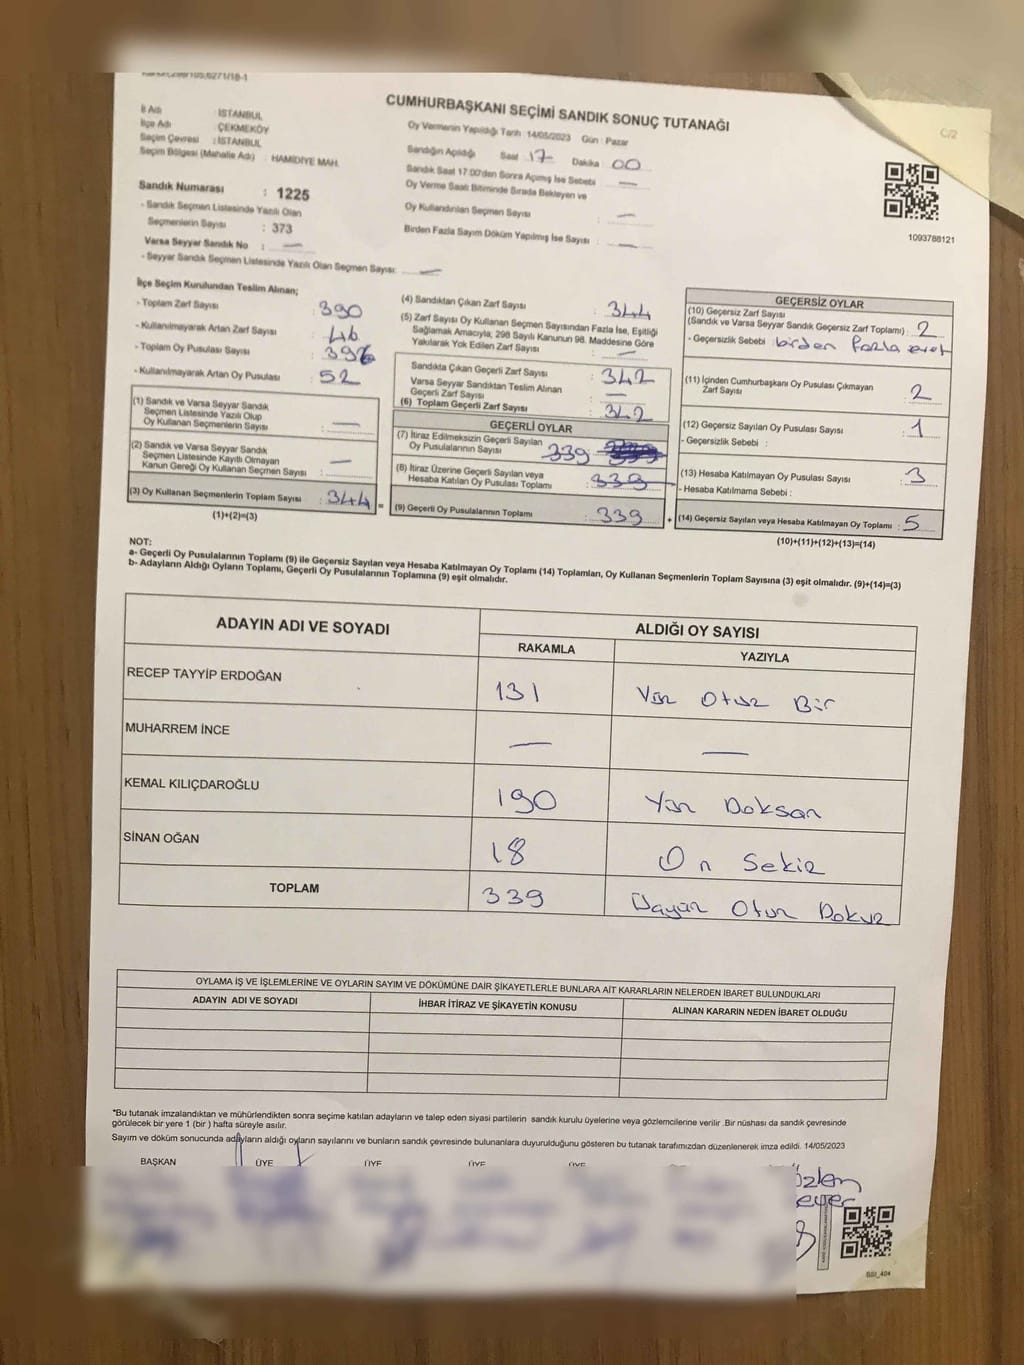 CUMHURBAŞKANI SEÇİMİ SANDIK SONUÇ TUTANAĞI
C/2
İl Adı : İSTANBUL
İlçe Adı : ÇEKMEKÖY
Seçim Çevresi : İSTANBUL
Seçim Bölgesi (Mahalle Adı) : HAMİDİYE MAH.
Sandık Numarası : 1225
- Sandık Seçmen Listesinde Yazılı Olan
Seçmenlerin Sayısı : 373
Varsa Seyyar Sandık No : —
- Seyyar Sandık Seçmen Listesinde Yazılı Olan Seçmen Sayısı: —
Oy Vermenin Yapıldığı Tarih 14/05/2023 Gün : Pazar
Sandığın Açıldığı Saat 17 Dakika 00
Sandık Saat 17:00'den Sonra Açımış İse Sebebi —
Oy Verme Saati Bitiminde Sırada Bekleyen ve
Oy Kullandırılan Seçmen Sayısı : —
Birden Fazla Sayım Döküm Yapılmış İse Sayısı : —
1093788121
İlçe Seçim Kurulundan Teslim Alınan;
- Toplam Zarf Sayısı : 390
- Kullanılmayarak Artan Zarf Sayısı : 46
- Toplam Oy Pusulası Sayısı : 396
- Kullanılmayarak Artan Oy Pusulası : 52
(1) Sandık ve Varsa Seyyar Sandık
Seçmen Listesinde Yazılı Olup
Oy Kullanan Seçmenlerin Sayısı : —
(2) Sandık ve Varsa Seyyar Sandık
Seçmen Listesinde Kayıtlı Olmayan
Kanun Gereği Oy Kullanan Seçmen Sayısı : —
(3) Oy Kullanan Seçmenlerin Toplam Sayısı : 344 =
(1)+(2)=(3)
(4) Sandıktan Çıkan Zarf Sayısı : 344
(5) Zarf Sayısı Oy Kullanan Seçmen Sayısından Fazla İse, Eşitliği
Sağlamak Amacıyla, 298 Sayılı Kanunun 98. Maddesine Göre
Yakılarak Yok Edilen Zarf Sayısı : —
Sandıkta Çıkan Geçerli Zarf Sayısı : 342
Varsa Seyyar Sandıktan Teslim Alınan
Geçerli Zarf Sayısı : —
(6) Toplam Geçerli Zarf Sayısı : 342
GEÇERLİ OYLAR
(7) İtiraz Edilmeksizin Geçerli Sayılan
Oy Pusulalarının Sayısı : 339
(8) İtiraz Üzerine Geçerli Sayılan veya
Hesaba Katılan Oy Pusulası Toplamı : 339
(9) Geçerli Oy Pusulalarının Toplamı : 339 +
GEÇERSİZ OYLAR
(10) Geçersiz Zarf Sayısı
(Sandık ve Varsa Seyyar Sandık Geçersiz Zarf Toplamı) : 2
- Geçersizlik Sebebi : birden fazla evet
(11) İçinden Cumhurbaşkanı Oy Pusulası Çıkmayan
Zarf Sayısı : 2
(12) Geçersiz Sayılan Oy Pusulası Sayısı : 1
- Geçersizlik Sebebi :
(13) Hesaba Katılmayan Oy Pusulası Sayısı : 3
- Hesaba Katılmama Sebebi :
(14) Geçersiz Sayılan veya Hesaba Katılmayan Oy Toplamı : 5
(10)+(11)+(12)+(13)=(14)
NOT:
a- Geçerli Oy Pusulalarının Toplamı (9) ile Geçersiz Sayılan veya Hesaba Katılmayan Oy Toplamı (14) Toplamları, Oy Kullanan Seçmenlerin Toplam Sayısına (3) eşit olmalıdır. (9)+(14)=(3)
b- Adayların Aldığı Oyların Toplamı, Geçerli Oy Pusulalarının Toplamına (9) eşit olmalıdır.
ADAYIN ADI VE SOYADI ALDIĞI OY SAYISI
RAKAMLA YAZIYLA
RECEP TAYYİP ERDOĞAN 131 Yüz Otuz Bir
MUHARREM İNCE — —
KEMAL KILIÇDAROĞLU 190 Yüz Doksan
SİNAN OĞAN 18 On Sekiz
TOPLAM 339 Üçyüz Otuz Dokuz
OYLAMA İŞ VE İŞLEMLERİNE VE OYLARIN SAYIM VE DÖKÜMÜNE DAİR ŞİKAYETLERLE BUNLARA AİT KARARLARIN NELERDEN İBARET BULUNDUKLARI
ADAYIN ADI VE SOYADI İHBAR İTİRAZ VE ŞİKAYETİN KONUSU ALINAN KARARIN NEDEN İBARET OLDUĞU
*Bu tutanak imzalandıktan ve mühürlendikten sonra seçime katılan adayların ve talep eden siyasi partilerin sandık kurulu üyelerine veya gözlemcilerine verilir .Bir nüshası da sandık çevresinde
görülecek bir yere 1 (bir ) hafta süreyle asılır.
Sayım ve döküm sonucunda adayların aldığı oyların sayılarını ve bunların sandık çevresinde bulunanlara duyurulduğunu gösteren bu tutanak tarafımızdan düzenlenerek imza edildi. 14/05/2023
BAŞKAN ÜYE ÜYE ÜYE ÜYE